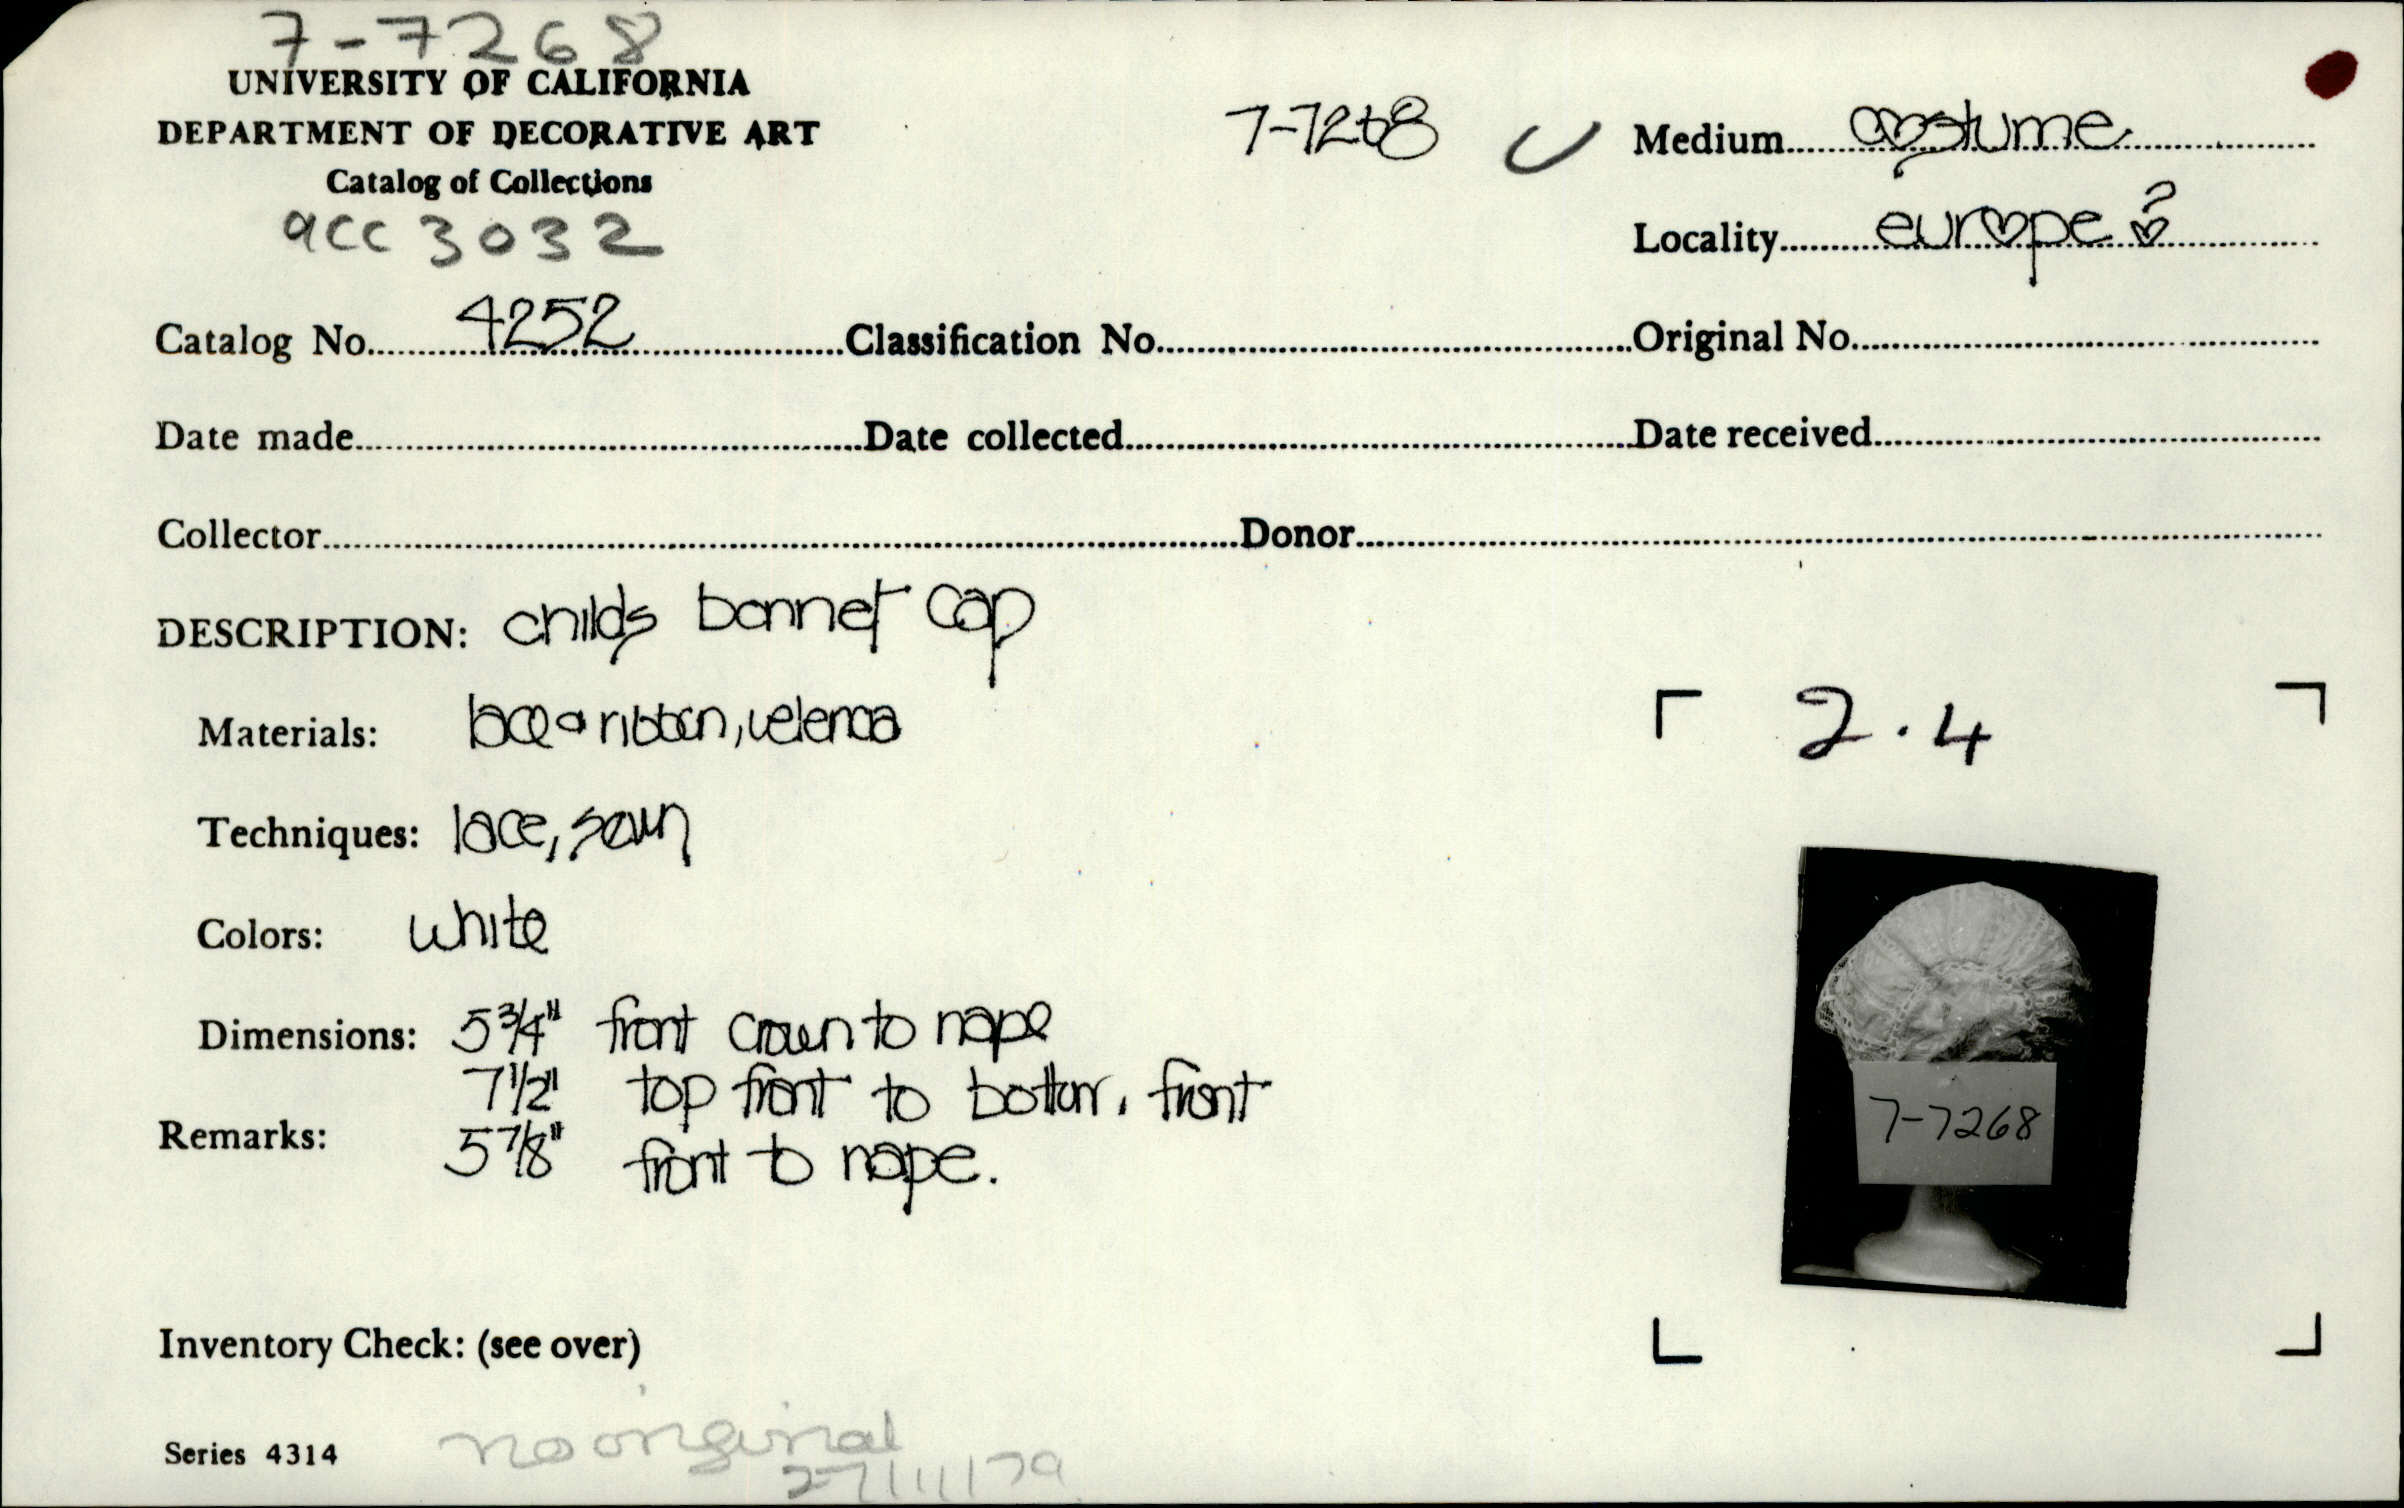 7-7268
UNIVERSITY OF CALIFORNIA
DEPARTMENT OF DECORATIVE ART
Catalog of Collections
acc 3032
7-7268
Medium costume
Locality europe ?
Catalog No. 4252 Classification No. Original No.
Date made Date collected Date received
Collector Donor
DESCRIPTION: childs bonnet cap
Materials: lace & ribbon,
Techniques: lace, sewn
Colors: white
Dimensions: 5 3/4" front crown to nape
7 1/2" top front to bottom, front
Remarks: 5 7/8" front to nape.
2.4
7-7268
Inventory Check: (see over)
Series 4314 no original
27/11/79